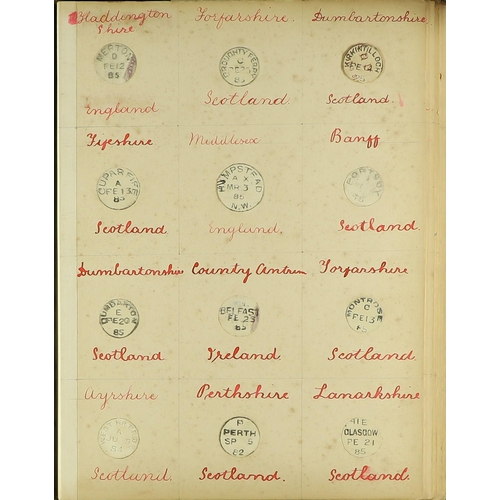 Haddington Forfarshire Dumbartonshire
shire
MERTON
D
FE 12
85
BROUGHTY FERRY
C
85
KIRKINTILLOCH
FE 12
England Scotland. Scotland.
Fifeshire Middlesex Banff
CUPAR FIFE
A
FE 13
85
HAMPSTEAD
A X
MR 3
85
N.W.
Scotland England. Scotland.
Dumbartonshire County Antrim Forfarshire
DUMBARTON
E
FE 23
85
BELFAST
FE 23
85
MONTROSE
C
FE 13
85
Scotland Ireland. Scotland.
Ayrshire Perthshire Lanarkshire
PERTH
SP 5
82
41 E
GLASGOW
FE 21
85
Scotland. Scotland. Scotland.